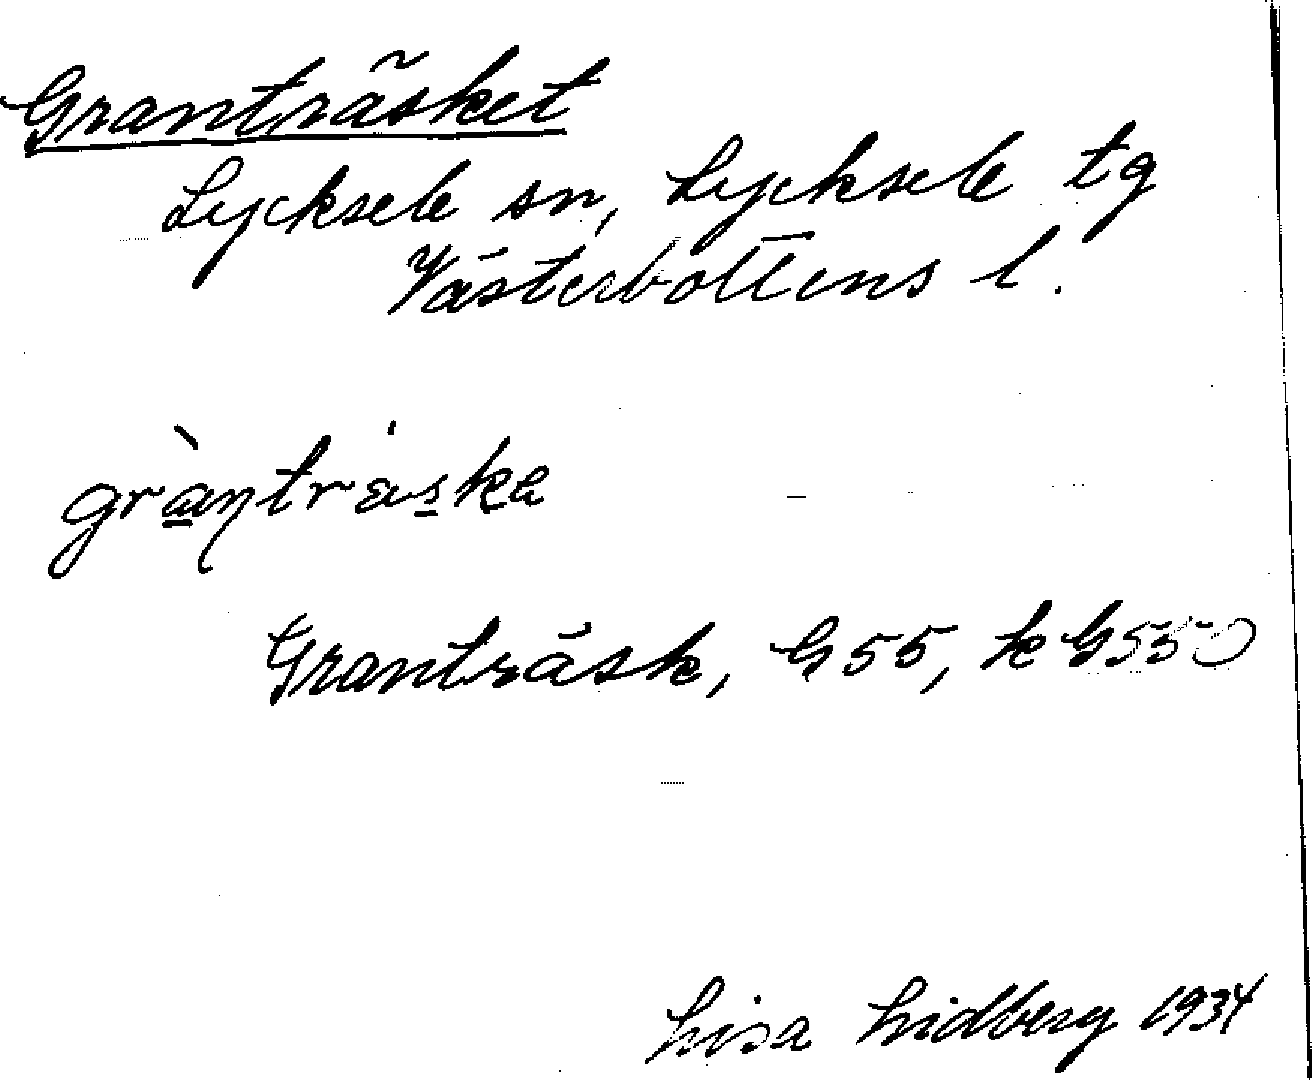 Granträsket
Lycksele sn, Lycksele tg
Västerbottens l.
grànträska
Granträsk, G55, k G550
Lisa Lidberg 1934